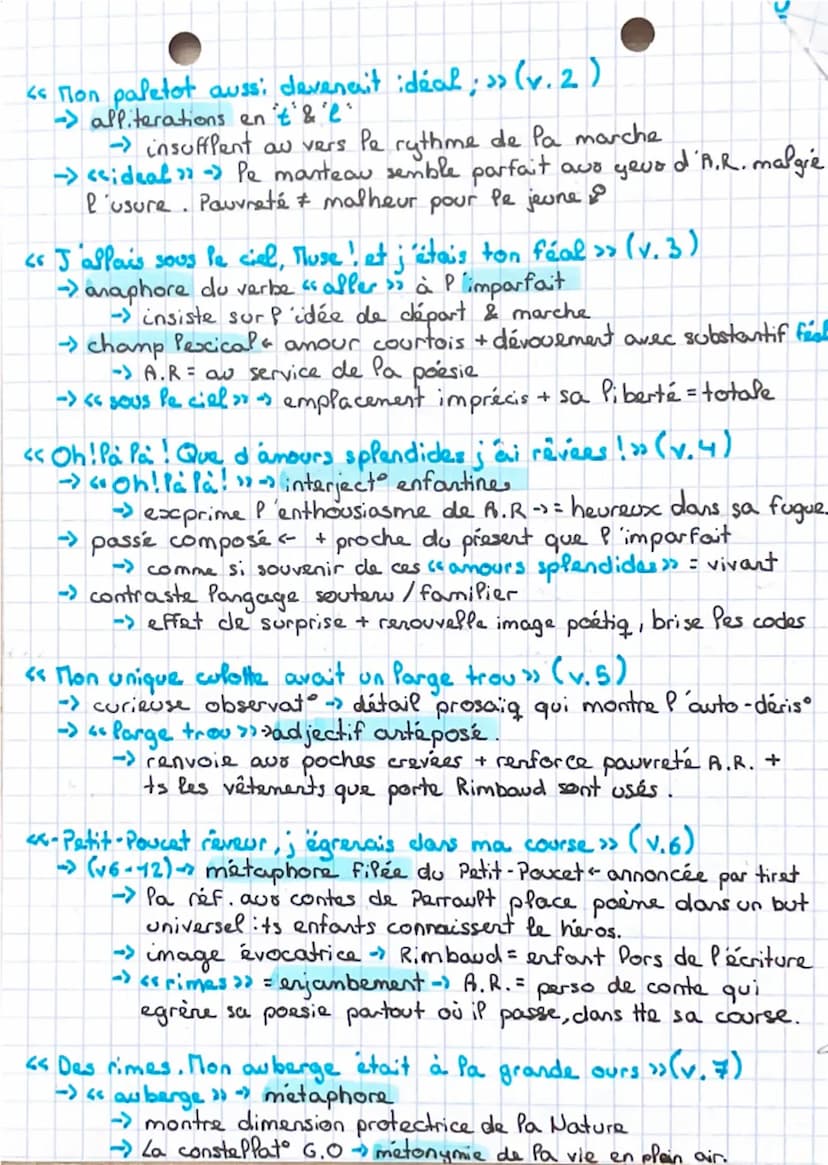 << Mon paletot aussi devenait idéal ; >> (v. 2)
→ allitérations en 't' & 'l'
→ insufflent au vers le rythme de la marche
→ << idéal >> → le manteau semble parfait aux yeux d'A.R. malgré
l'usure. Pauvreté ≠ malheur pour le jeune
<< J'allais sous le ciel, Muse ! et j'étais ton féal >> (v. 3)
→ anaphore du verbe << aller >> à l'imparfait
→ insiste sur l'idée de départ & marche
→ champ lexical ← amour courtois + dévouement avec substantif féal
→ A.R = au service de la poésie
→ << sous le ciel >> → emplacement imprécis + sa liberté = totale
<< Oh ! là là ! Que d'amours splendides j'ai rêvées ! >> (v. 4)
→ << Oh ! là là ! >> → interject° enfantines
→ exprime l'enthousiasme de A.R → = heureux dans sa fugue.
→ passé composé ← + proche du présent que l'imparfait
→ comme si souvenir de ces << amours splendides >> = vivant
→ contraste langage soutenu / familier
→ effet de surprise + renouvelle image poétiq, brise les codes
<< Mon unique culotte avait un large trou >> (v. 5)
→ curieuse observat° → détail prosaïq qui montre l'auto-déris°
→ << large trou >> → adjectif antéposé.
→ renvoie aux poches crevées + renforce pauvreté A.R. +
ts les vêtements que porte Rimbaud sont usés.
<< - Petit-Poucet rêveur, j'égrenais dans ma course >> (v.6)
→ (v6-12) → métaphore filée du Petit-Poucet ← annoncée par tiret
→ la réf. aux contes de Perrault place poème dans un but
universel : ts enfants connaissent le héros.
→ image évocatrice → Rimbaud = enfant lors de l'écriture
→ << rimes >> = enjambement → A.R. = perso de conte qui
egrène sa poesie partout où il passe, dans tte sa course.
<< Des rimes. Mon auberge était à la grande ours >> (v. 7)
→ << auberge >> → métaphore
→ montre dimension protectrice de la Nature
→ La constellat° G.O → métonymie de la vie en plein air.